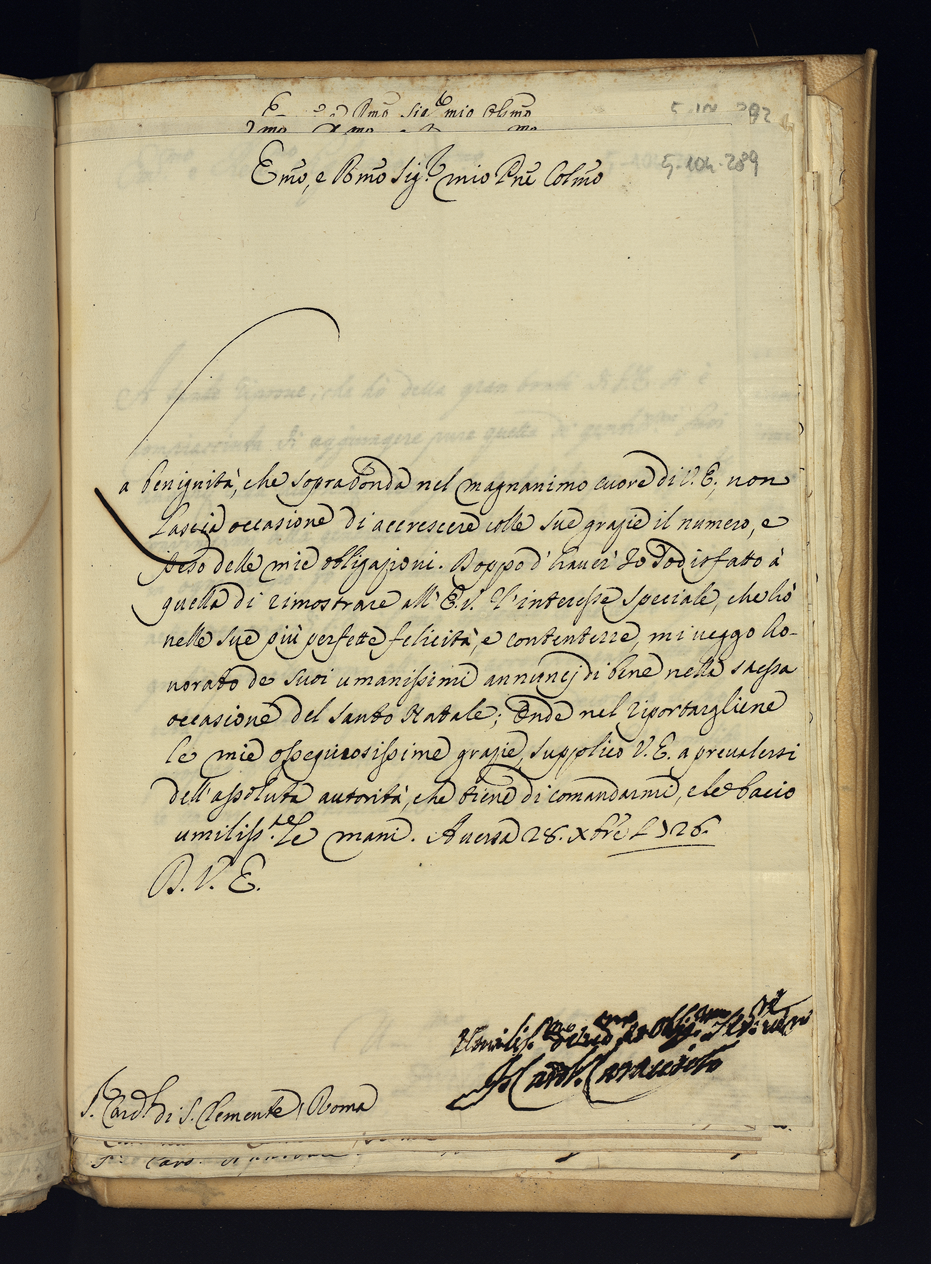 5-104-292
5-104-289
Emo, e Rmo Sig.r mio Pne Colmo
La benignità, che soprabonda nel magnanimo cuore di V. E., non
lascia occasione di accrescere colle sue grazie il numero, e
peso delle mie obligazioni. Doppo d'haver Io sodisfatto à
quella di rimostrare all'E.V. l'interesse speciale, che hò
nelle sue più perfette felicità, e contentezze, mi veggo ho-
norato de suoi umanissimi annunzj di bene nella stessa
occasione del Santo Natale; Onde nel riportargliene
le mie ossequiosissime grazie, supplico V. E. a prevalersi
dell'assoluta autorità, che tiene di comandarmi, e le bacio
umiliss.te le mani. Aversa 28. Xbre 1726.
D. V. E.
Umilis.mo
J Card. Caracciolo
S. Card. di S. Clemente, Roma